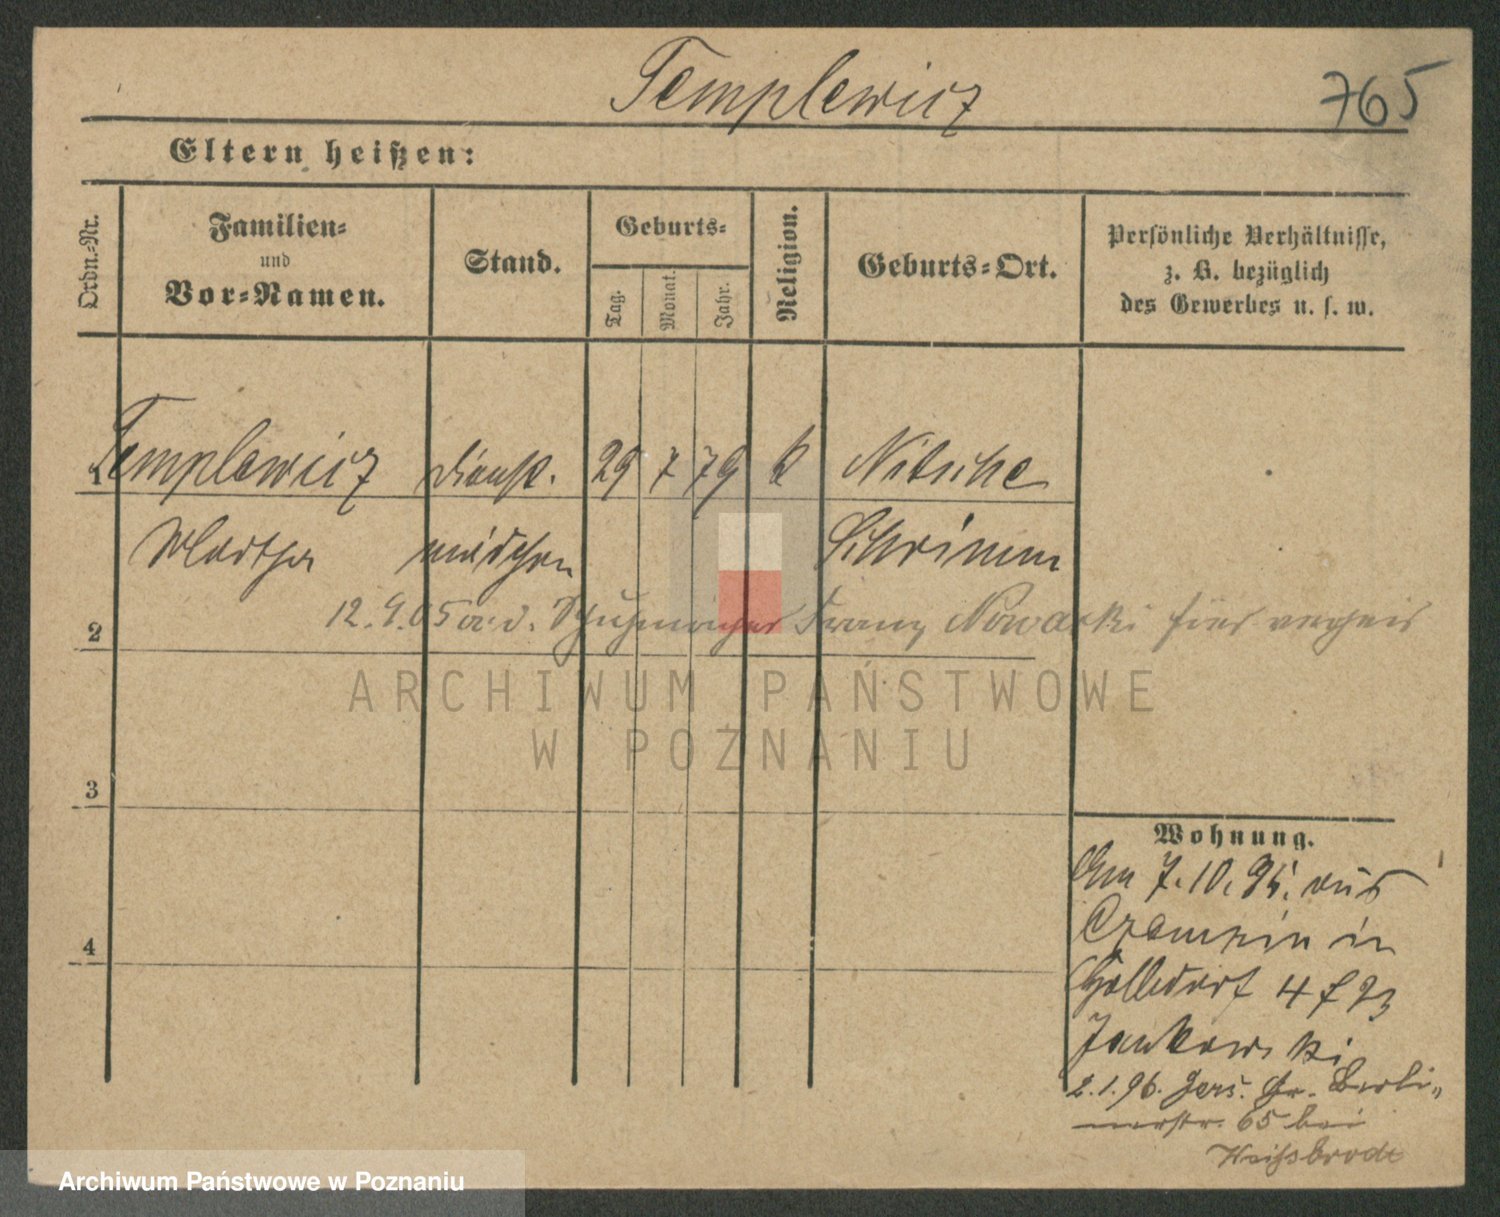 Templewicz 765
Eltern heißen:
Ordn.-Nr.
Familien-
und
Vor-Namen.
Stand.
Geburts-
Tag.
Monat.
Jahr.
Religion.
Geburts-Ort.
Persönliche Verhältnisse,
z. B. bezüglich
des Gewerbes u. s. w.
1 Templewicz Dienst- 29 7 79 k Nitsche
Martha mädchen Schrimm
12.9.05 a. d. Schuhmacher Franz Nowacki hier verheir
2
ARCHIWUM PAŃSTWOWE
W POZNANIU
3
4
Wohnung.
Am 7.10.95. aus
Czempin in
Halbdorf 4 f 23
Jankowski
2.1.96. Jers. Gr. Berli-
nerstr. 65 bei
Weissbrodt
Archiwum Państwowe w Poznaniu